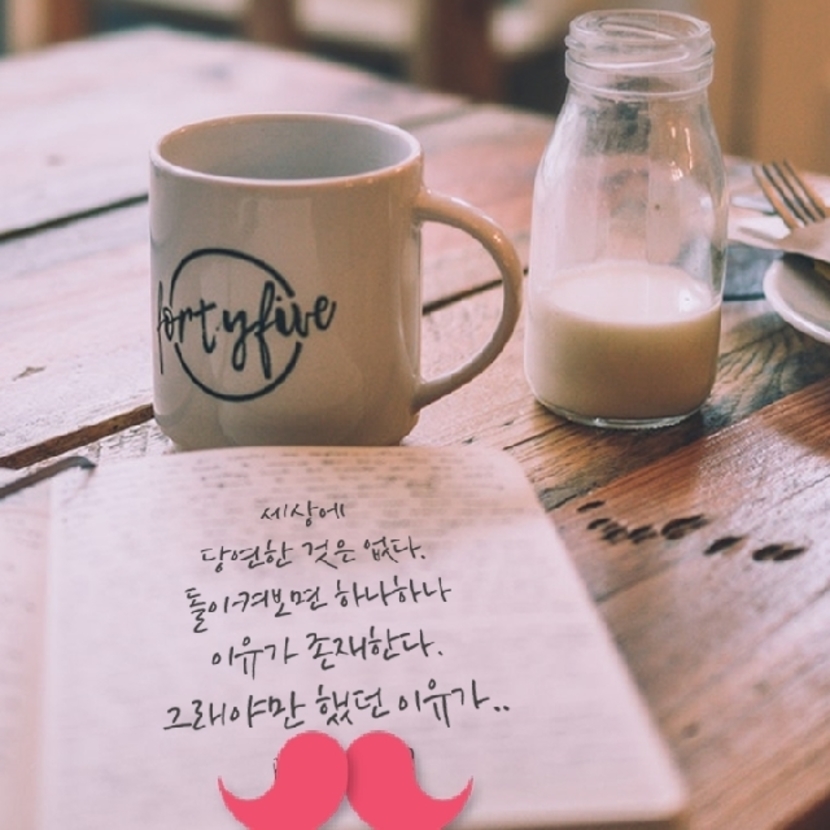 fortyfive
세상에
당연한 것은 없다.
돌이켜보면 하나하나
이유가 존재한다.
그래야만 했던 이유가..